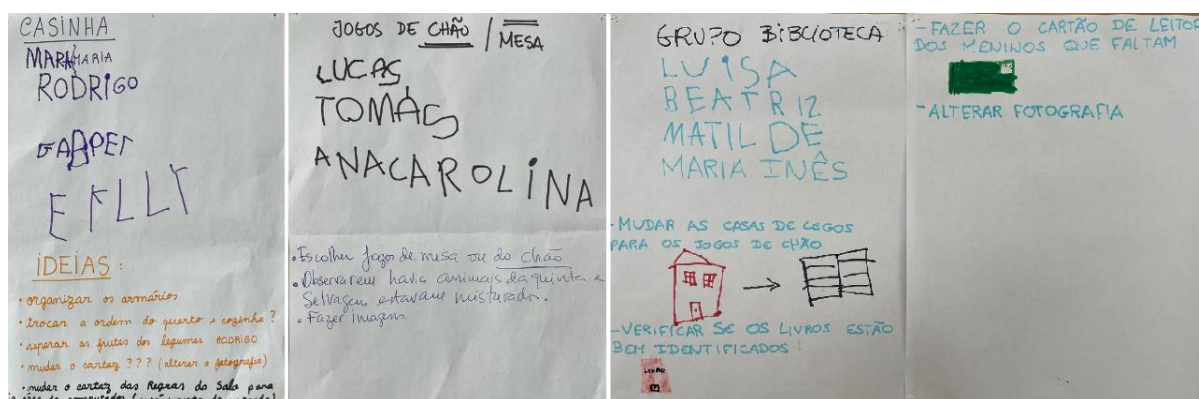 CASINHA
MARIA
RODRIGO
IDEIAS:
• organizar os armários
• trocar a ordem do quarto e cozinha?
• separar as frutas dos legumes RODRIGO
• mudar o cartaz ??? (alterar a fotografia)
• mudar o cartaz das Regras da Sala para
JOGOS DE CHÃO / MESA
LUCAS
TOMÁS
ANACAROLINA
• Escolher jogos de mesa ou do chão
• Observaram havia animais da quinta e
selvagem estavam misturados.
• Fazer imagens
GRUPO BIBLIOTECA
LUISA
BEATRIZ
MATILDE
MARIA INÊS
- MUDAR AS CASAS DE LEGOS
PARA OS JOGOS DE CHÃO
- VERIFICAR SE OS LIVROS ESTÃO
BEM IDENTIFICADOS!
- FAZER O CARTÃO DE LEITOR
DOS MENINOS QUE FALTAM
- ALTERAR FOTOGRAFIA